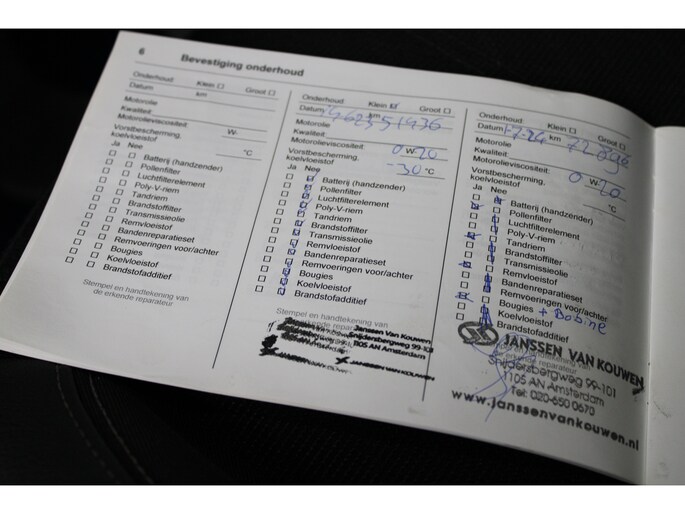 6
Bevestiging onderhoud
Onderhoud: Klein ☐ Groot ☐
Datum km
Motorolie
Kwaliteit:
Motorolieviscositeit: W-
Vorstbescherming, koelvloeistof °C
Ja Nee
☐ ☐ Batterij (handzender)
☐ ☐ Pollenfilter
☐ ☐ Luchtfilterelement
☐ ☐ Poly-V-riem
☐ ☐ Tandriem
☐ ☐ Brandstoffilter
☐ ☐ Transmissieolie
☐ ☐ Remvloeistof
☐ ☐ Bandenreparatieset
☐ ☐ Remvoeringen voor/achter
☐ ☐ Koelvloeistof
☐ ☐ Brandstofadditief
Stempel en handtekening van
de erkende reparateur
Onderhoud: Klein ☑ Groot ☐
Datum km 51936
Motorolie
Kwaliteit:
Motorolieviscositeit: 0 W- 20
Vorstbescherming, koelvloeistof -30 °C
Ja Nee
Batterij (handzender)
Pollenfilter
Luchtfilterelement
Poly-V-riem
Tandriem
Brandstoffilter
Transmissieolie
Remvloeistof
Bandenreparatieset
Remvoeringen voor/achter
Bougies
Koelvloeistof
Brandstofadditief
Stempel en handtekening van
de erkende reparateur
Janssen Van Kouwen
Snijdersbergweg 99-101
1105 AN Amsterdam
JANSSEN VAN KOUWEN
Onderhoud: Klein ☐ Groot ☐
Datum -7-24 km
Motorolie
Kwaliteit:
Motorolieviscositeit: 0 W- 20
Vorstbescherming, koelvloeistof °C
Ja Nee
Batterij (handzender)
Pollenfilter
Luchtfilterelement
Poly-V-riem
Tandriem
Brandstoffilter
Transmissieolie
Remvloeistof
Bandenreparatieset
Remvoeringen voor/achter
Bougies + Bobine
Koelvloeistof
Brandstofadditief
JANSSEN VAN KOUWEN
erkende reparateur
Snijdersbergweg 99-101
1105 AN Amsterdam
Tel: 020-650 0670
www.janssenvankouwen.nl